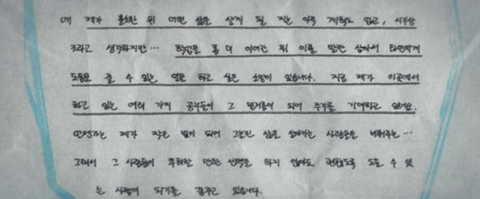 제가 출소한 뒤 어떤 삶을 살게 될 지는 아직 계획도 없고, 시기상
조라고 생각하지만… 학업을 좀 더 이어간 뒤 이를 발판 삼아서 타인에게
도움을 줄 수 있는 일을 하고 싶은 소망이 있습니다. 지금 제가 이곳에서
하고 있는 여러 가지 공부들이 그 밑거름이 되어 주기를
언젠가는 제가 작은 빛이 되어 그늘진 삶을 살아가는 사람들을 비춰주는…
그래서 그 사람들이 후회할 만한 선택을 하지 않아도 되도록 도울 수 있
는 사람이 되기를 꿈꾸고 있습니다.